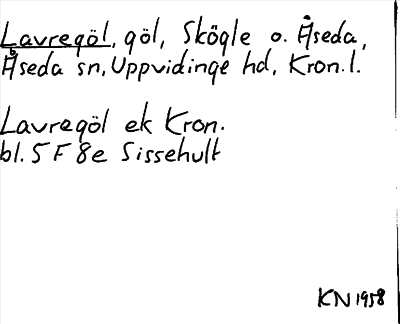 Lavregöl, göl, Skögle o. Åseda,
Åseda sn, Uppvidinge hd, Kron.l.
Lavregöl ek Kron.
bl. 5 F 8e Sissehult
KN 1958